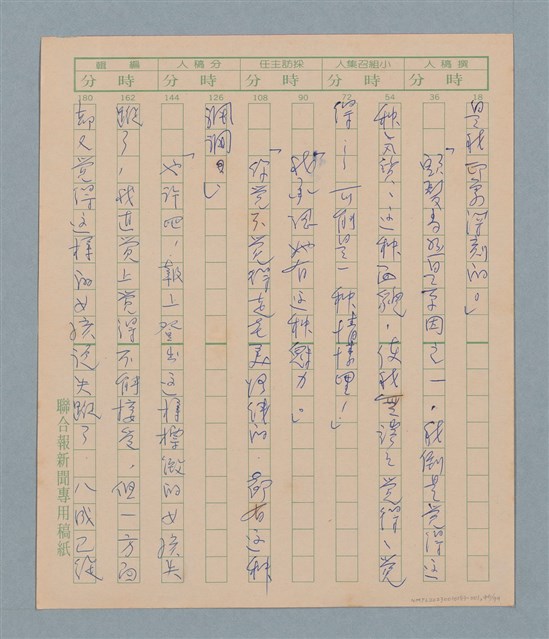 撰稿人 小組召集人 採訪主任 分稿人 編輯
時 分 時 分 時 分 時 分 時 分
18 36 54 72 90 108 126 144 162 180
是我印象深刻的。」
「頭髮當然是原因之一，我倒是覺得這
種氣質、這種面貌，使我覺得、覺
得……可能是一種情
「我承認她有這種魅力。」
「你覺不覺得美的，都有這種
「也許吧！報上登出這樣標緻的女孩失
蹤了，我直覺上覺得不能接受，但一方面
卻又覺得這樣的女孩說失蹤了，八成已經
聯合報新聞專用稿紙